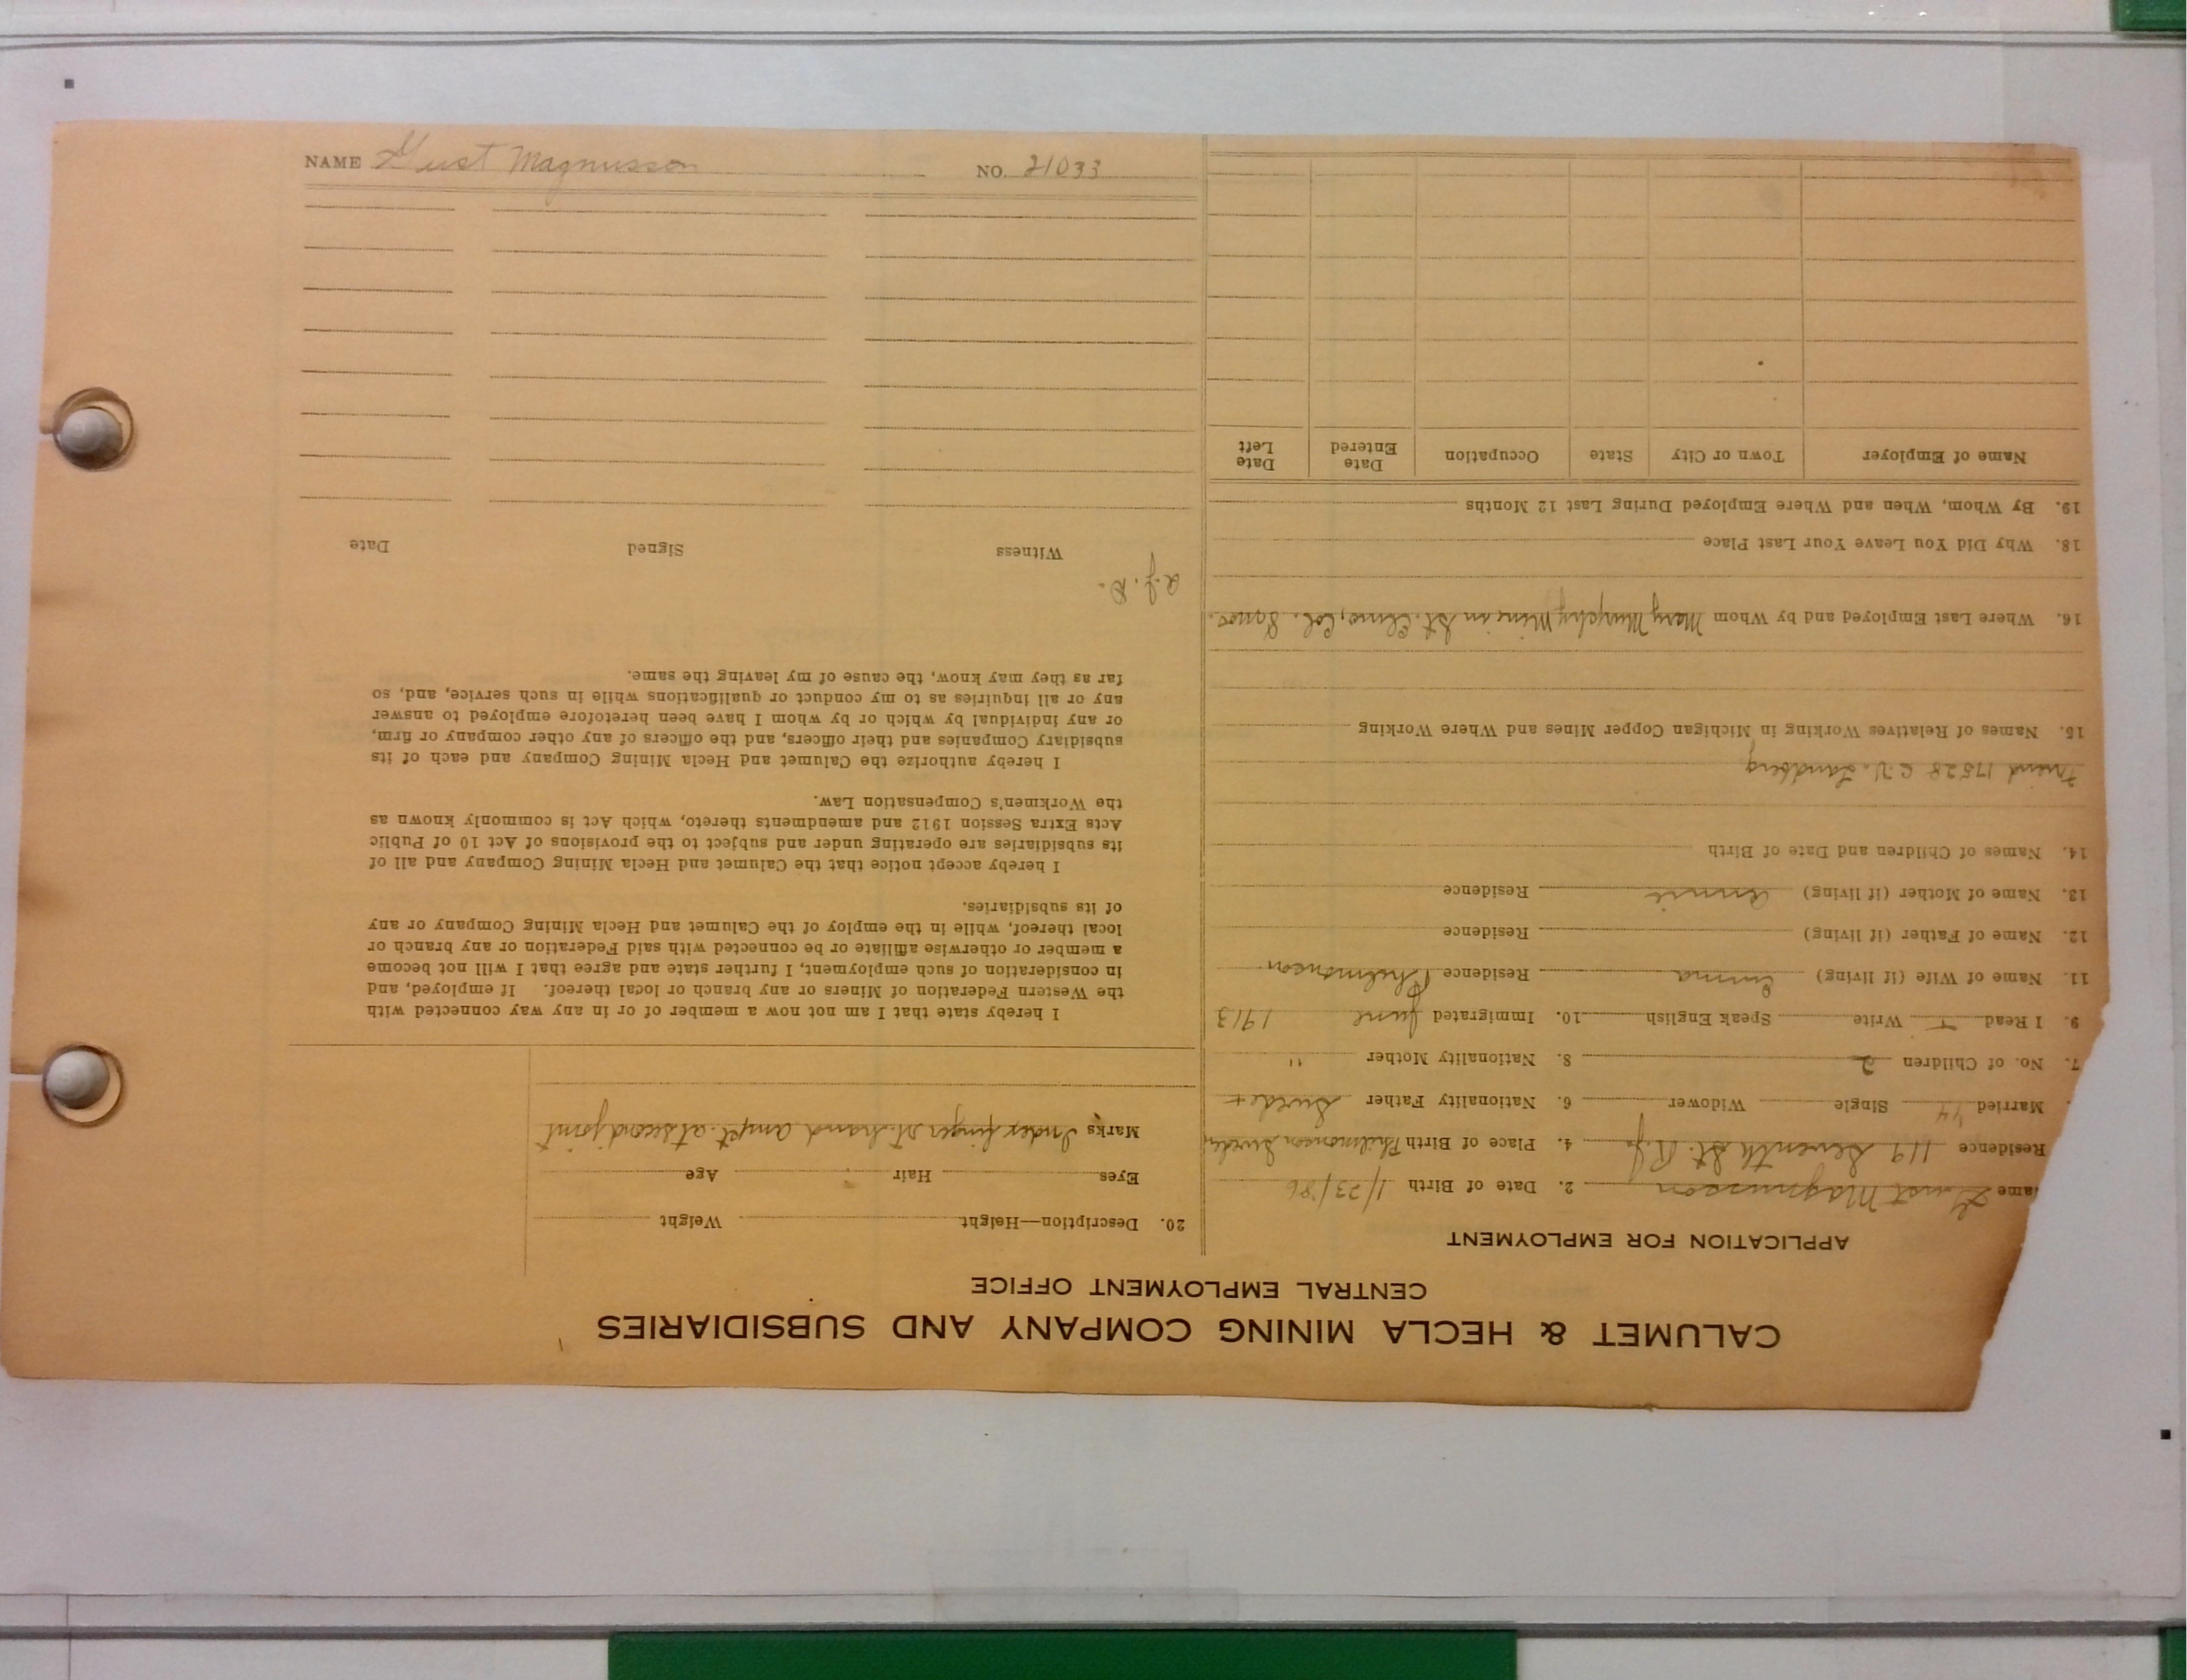 CALUMET & HECLA MINING COMPANY AND SUBSIDIARIES
CENTRAL EMPLOYMENT OFFICE
APPLICATION FOR EMPLOYMENT
ame Gust Magnusson 2. Date of Birth 1/23/86
Residence 119 Seventh St. R.J. 4. Place of Birth Philmonson Sweden
Married 14 Single Widower 6. Nationality Father Swede +
7. No. of Children 2 8. Nationality Mother "
9. I Read Write Speak English 10. Immigrated June 1913
11. Name of Wife (if living) Emma Residence Philmonson
12. Name of Father (if living) Residence
13. Name of Mother (if living) Annie Residence
14. Names of Children and Date of Birth
friend 17528 C.V. Landberg
15. Names of Relatives Working in Michigan Copper Mines and Where Working
16. Where Last Employed and by Whom Mary Murphy Mine in St. Elmo, Col. 8 mos.
18. Why Did You Leave Your Last Place
19. By Whom, When and Where Employed During Last 12 Months
Name of Employer Town or City State Occupation Date Entered Date Left
20. Description—Height Weight
Eyes Hair Age
Marks Index finger rt. hand ampt. at second joint
I hereby state that I am not now a member of or in any way connected with
the Western Federation of Miners or any branch or local thereof. If employed, and
in consideration of such employment, I further state and agree that I will not become
a member or otherwise affiliate or be connected with said Federation or any branch or
local thereof, while in the employ of the Calumet and Hecla Mining Company or any
of its subsidiaries.
I hereby accept notice that the Calumet and Hecla Mining Company and all of
its subsidiaries are operating under and subject to the provisions of Act 10 of Public
Acts Extra Session 1912 and amendments thereto, which Act is commonly known as
the Workmen's Compensation Law.
I hereby authorize the Calumet and Hecla Mining Company and each of its
subsidiary Companies and their officers, and the officers of any other company or firm,
or any individual by which or by whom I have been heretofore employed to answer
any or all inquiries as to my conduct or qualifications while in such service, and, so
far as they may know, the cause of my leaving the same.
a.j.K.
Witness Signed Date
NAME Gust Magnusson NO. 21033